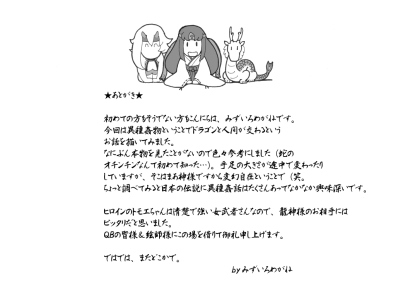 ★あとがき★
初めての方もそうでない方もこんにちは、みずいろわがねです。
今回は異種姦物ということでドラゴンと人間が交わるという
お話を描いてみました。
なにぶん本物を見たことがないので色々参考にしました（蛇の
オチンチンなんて初めて知った…）。手足の大きさが途中で変わったり
していますが、そこはまあ神様ですから変幻自在ということで（笑。
ちょっと調べてみると日本の伝説に異種姦話はたくさんあってなかなか興味深いです。
ヒロインのトモエちゃんは清楚で強い女武者さんなので、龍神様のお相手には
ピッタリだと思いました。
QBの皆様&絵師様にこの場を借りて御礼申し上げます。
ではでは、またどこかで。
by みずいろわがね